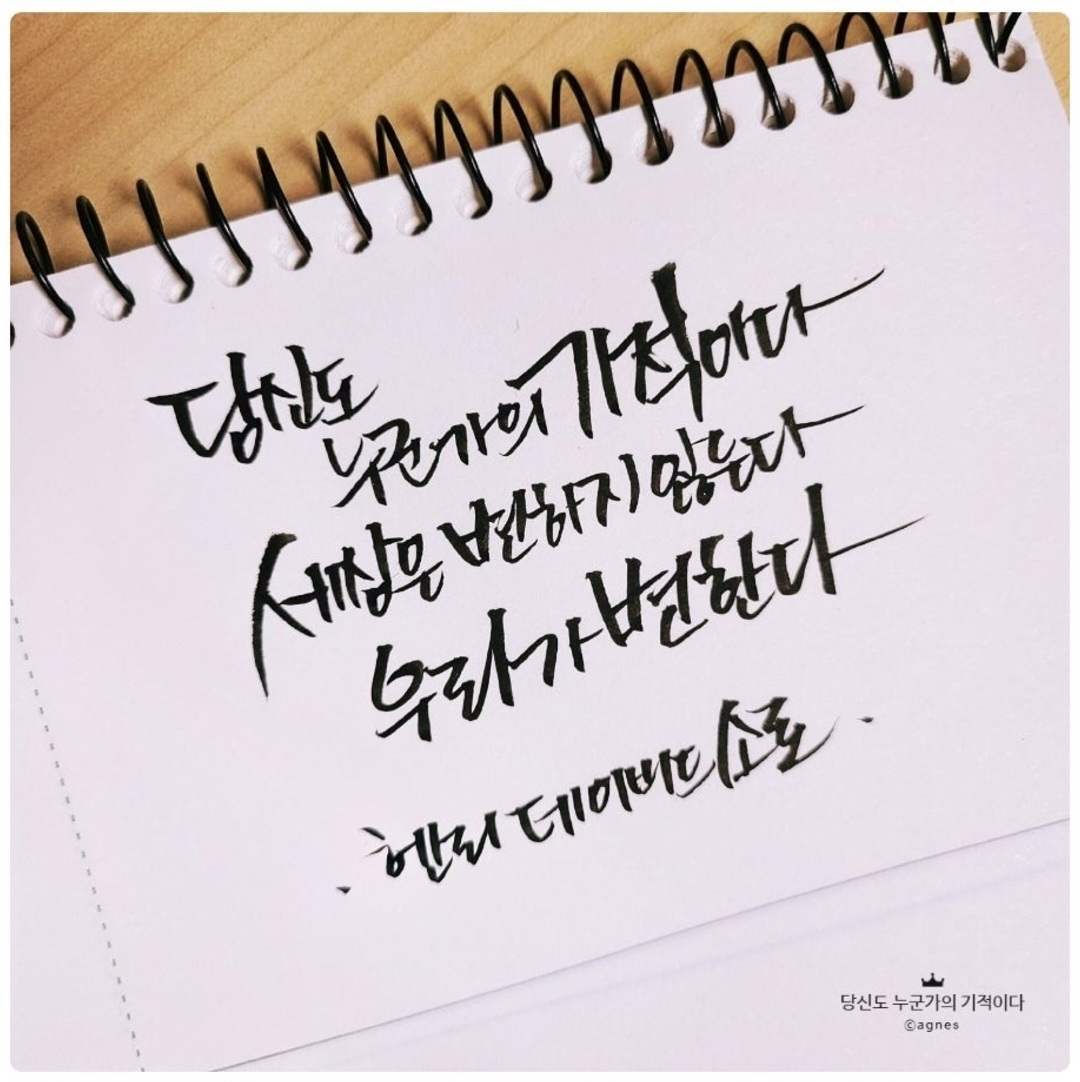 당신도
누군가의 기적이다
세상은 변하지 않는다
우리가 변한다
. 헨리 데이비드 소로 .
당신도 누군가의 기적이다
©agnes